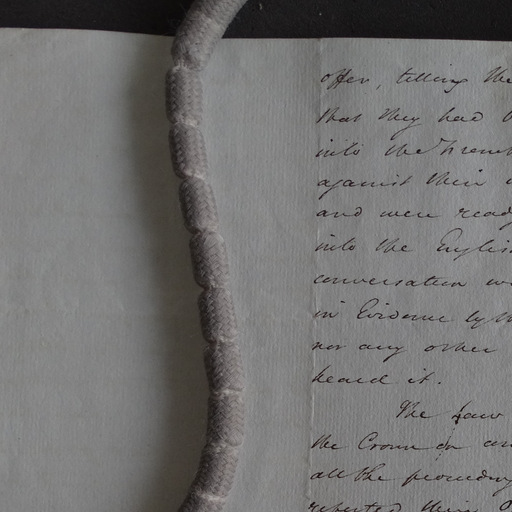 offer, telling the
that they had
into the French
against their
and were read
into the Englis
conversation w
in Evidence by
nor any other
heard it.
The Law
the Crown on an
all the proceeding
reported their